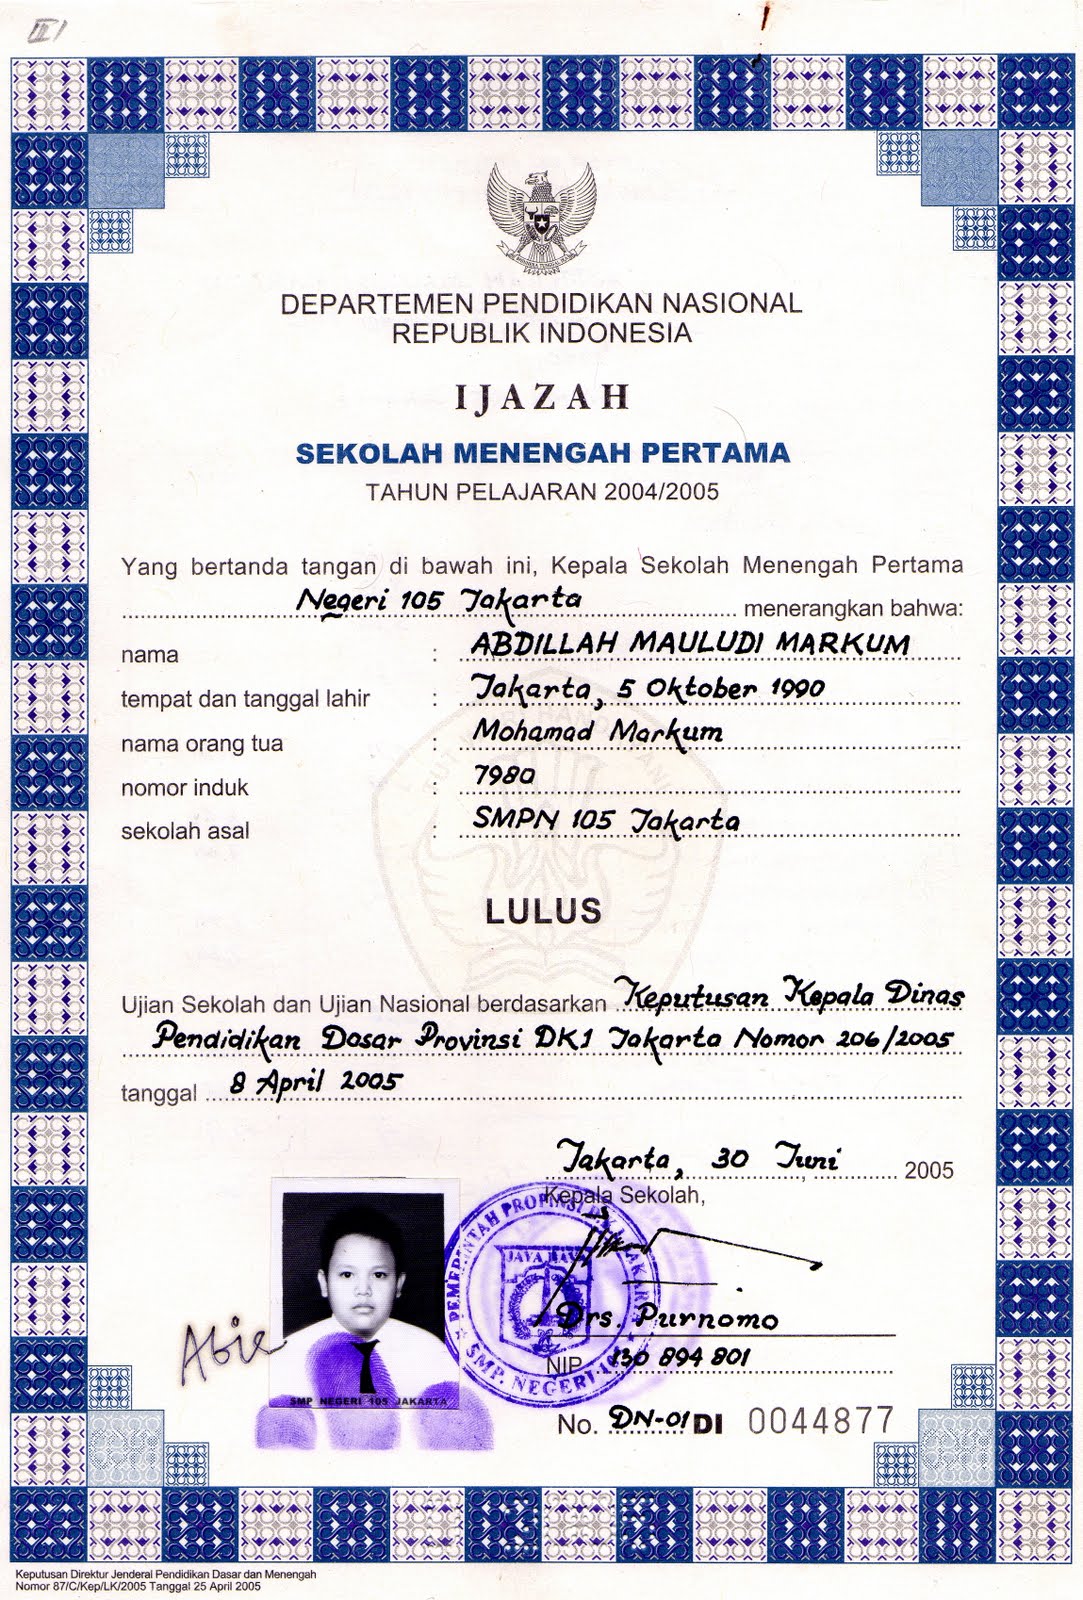 III/
DEPARTEMEN PENDIDIKAN NASIONAL
REPUBLIK INDONESIA
IJAZAH
SEKOLAH MENENGAH PERTAMA
TAHUN PELAJARAN 2004/2005
Yang bertanda tangan di bawah ini, Kepala Sekolah Menengah Pertama
Negeri 105 Jakarta menerangkan bahwa:
nama : ABDILLAH MAULUDI MARKUM
tempat dan tanggal lahir : Jakarta, 5 Oktober 1990
nama orang tua : Mohamad Markum
nomor induk : 7980
sekolah asal : SMPN 105 Jakarta
LULUS
Ujian Sekolah dan Ujian Nasional berdasarkan Keputusan Kepala Dinas
Pendidikan Dasar Provinsi DKI Jakarta Nomor 206/2005
tanggal 8 April 2005
Jakarta, 30 Juni 2005
Kepala Sekolah,
PEMERINTAH PROPINSI D.K.I. JAKARTA
JAYA RAYA
SMP. NEGERI 105
Drs. Purnomo
NIP 130 894 801
Abie
SMP NEGERI 105 JAKARTA
No. DN-01 DI 0044877
Keputusan Direktur Jenderal Pendidikan Dasar dan Menengah
Nomor 87/C/Kep/LK/2005 Tanggal 25 April 2005